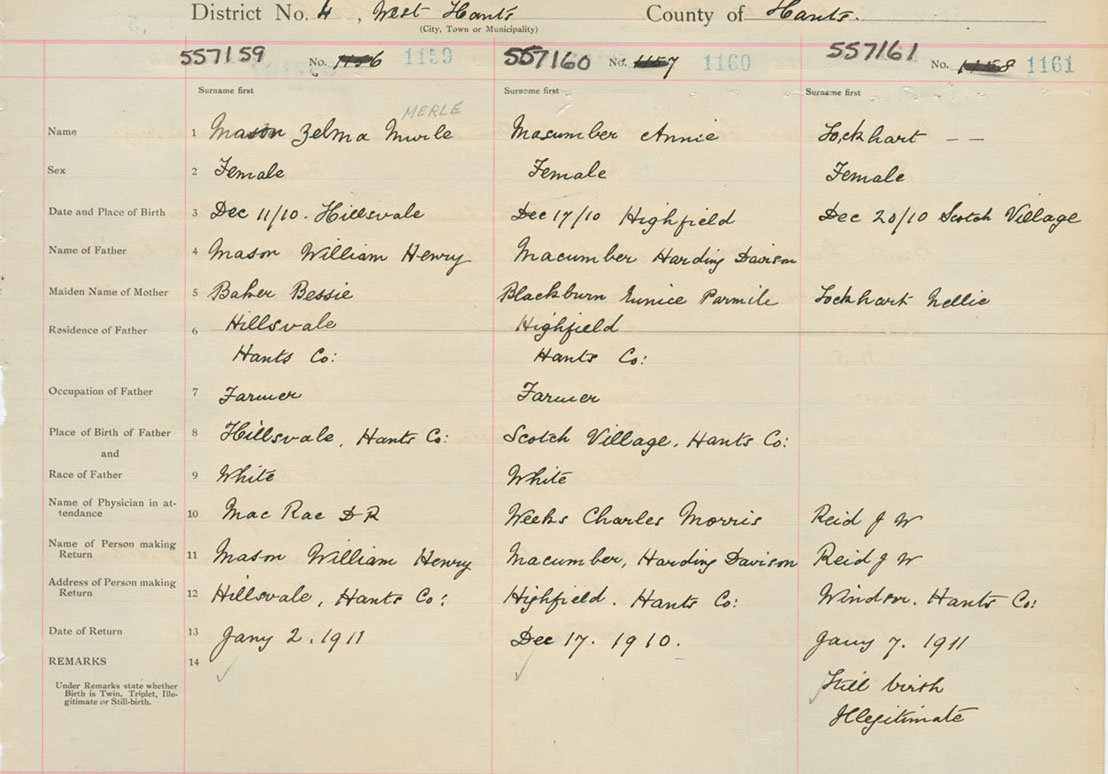 District No. 4, West Hants County of Hants.
(City, Town or Municipality)
557159 No. 1156 1159 557160 No. 1157 1160 557161 No. 1158 1161
Surname first Surname first Surname first
MERLE
Name 1 Mason Zelma Murle Macumber Annie Lockhart — —
Sex 2 Female Female Female
Date and Place of Birth 3 Dec 11/10. Hillsvale Dec 17/10 Highfield Dec 20/10 Scotch Village
Name of Father 4 Mason William Henry Macumber Harding Davison
Maiden Name of Mother 5 Baker Bessie Blackburn Eunice Permile Lockhart Nellie
Residence of Father 6 Hillsvale Highfield
Hants Co: Hants Co:
Occupation of Father 7 Farmer Farmer
Place of Birth of Father 8 Hillsvale, Hants Co: Scotch Village, Hants Co:
and
Race of Father 9 White White
Name of Physician in at-
tendance 10 Mac Rae D R Weeks Charles Morris Reid J W
Name of Person making
Return 11 Mason William Henry Macumber, Harding Davison Reid J W
Address of Person making
Return 12 Hillsvale, Hants Co: Highfield. Hants Co: Windsor. Hants Co:
Date of Return 13 Jany 2. 1911 Dec 17. 1910. Jany 7. 1911
REMARKS 14
Under Remarks state whether
Birth is Twin, Triplet, Ille-
gitimate or Still-birth.
Still birth
Illegitimate